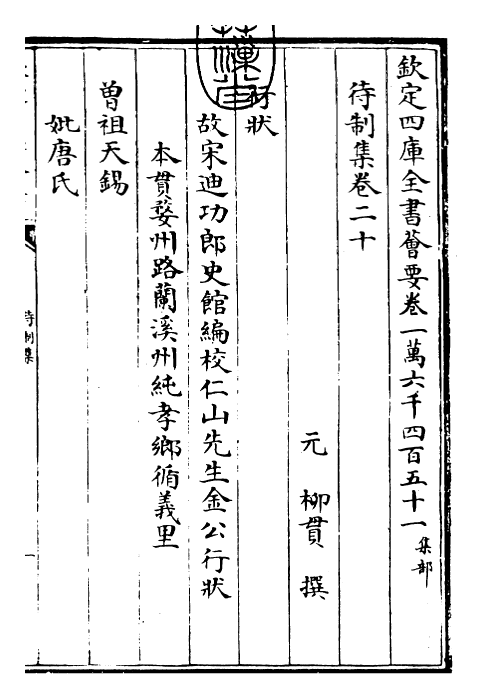 欽定四庫全書薈要卷一萬六千四百五十一 集部
待制集卷二十
元 柳貫 撰
行狀
故宋迪功郎史館編校仁山先生金公行狀
本貫婺州路蘭溪州純孝鄉循義里
曾祖天錫
妣唐氏
待制集
一